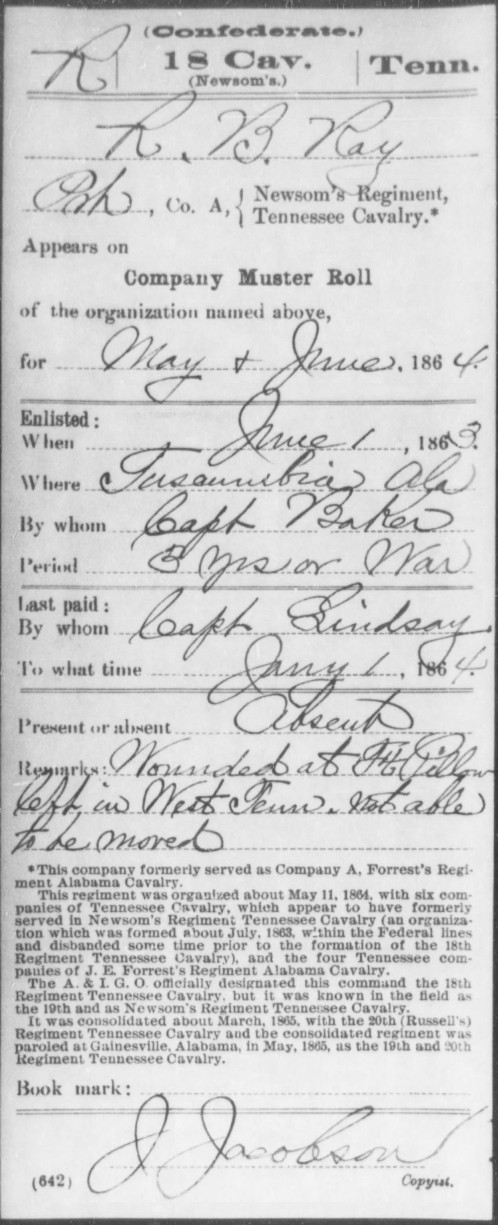 (Confederate.)
R | 18 Cav. | Tenn.
(Newsom's.)
R. B. Ray
Pvt, Co. A, { Newsom's Regiment,
Tennessee Cavalry.*
Appears on
Company Muster Roll
of the organization named above,
for May & June, 1864.
Enlisted:
When June 1, 1863.
Where Tuscumbia Ala
By whom Capt Baker
Period 3 yrs or War
Last paid:
By whom Capt Lindsay
To what time Jany 1, 1864.
Present or absent Absent
Remarks: Wounded at Ft Pillow
left in West Tenn. not able
to be moved
*This company formerly served as Company A, Forrest's Regi-
ment Alabama Cavalry.
This regiment was organized about May 11, 1864, with six com-
panies of Tennessee Cavalry, which appear to have formerly
served in Newsom's Regiment Tennessee Cavalry (an organiza-
tion which was formed about July, 1863, within the Federal lines
and disbanded some time prior to the formation of the 18th
Regiment Tennessee Cavalry), and the four Tennessee com-
panies of J. E. Forrest's Regiment Alabama Cavalry.
The A. & I. G. O. officially designated this command the 18th
Regiment Tennessee Cavalry, but it was known in the field as
the 19th and as Newsom's Regiment Tennessee Cavalry.
It was consolidated about March, 1865, with the 20th (Russell's)
Regiment Tennessee Cavalry and the consolidated regiment was
paroled at Gainesville, Alabama, in May, 1865, as the 19th and 20th
Regiment Tennessee Cavalry.
Book mark:
J Jacobson
(642) Copyist.